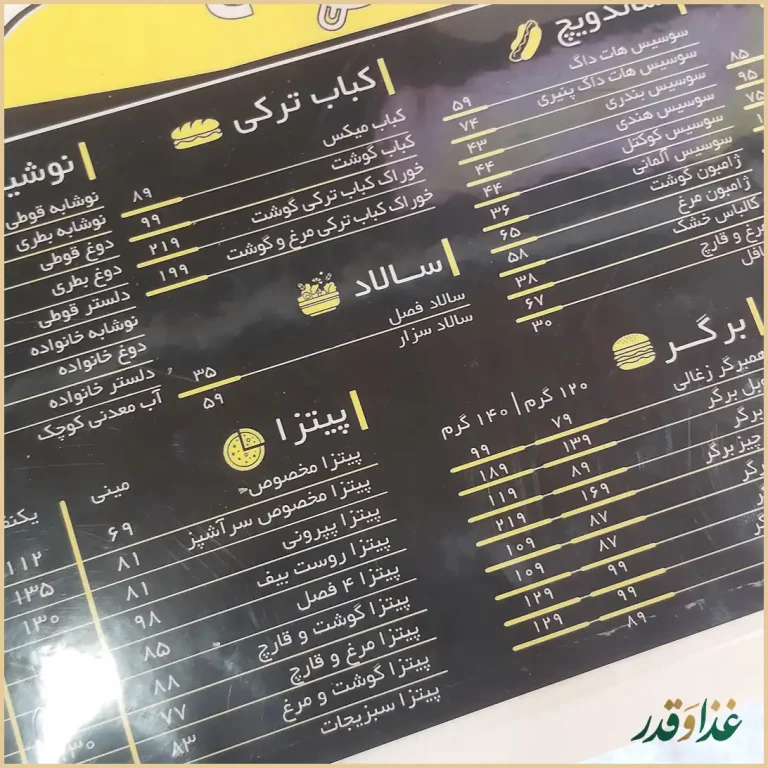 ساندویچ
سوسیس هات داگ ۵۹
سوسیس هات داگ پنیری ۷۴
سوسیس بندری ۴۳
سوسیس هندی ۴۴
سوسیس کوکتل ۴۴
سوسیس آلمانی ۳۶
ژامبون گوشت ۶۵
ژامبون مرغ ۵۸
کالباس خشک ۳۸
مرغ و قارچ ۶۷
۳۰
۸۵
۹۵
۷۵
برگر
۱۲۰ گرم | ۱۴۰ گرم
همبرگر زغالی ۷۹ ۹۹
۱۳۹ ۱۸۹
برگر ۸۹ ۱۱۹
چیز برگر ۱۶۹ ۲۱۹
۸۷ ۱۰۹
۸۷ ۱۰۹
۹۹ ۱۲۹
۹۹ ۱۲۹
۸۹
کباب ترکی
کباب میکس ۸۹
کباب گوشت ۹۹
خوراک کباب ترکی گوشت ۲۱۹
خوراک کباب ترکی مرغ و گوشت ۱۹۹
سالاد
سالاد فصل ۳۵
سالاد سزار ۵۹
پیتزا
مینی
پیتزا مخصوص ۶۹ ۱۱۲
پیتزا مخصوص سرآشپز ۸۱ ۱۳۵
پیتزا پپرونی ۸۱ ۱۳۰
پیتزا روست بیف ۹۸
پیتزا ۴ فصل ۸۵
پیتزا گوشت و قارچ ۸۸
پیتزا مرغ و قارچ ۷۷
پیتزا گوشت و مرغ ۸۳
پیتزا سبزیجات
نوشابه قوطی
نوشابه بطری
دوغ قوطی
دوغ بطری
دلستر قوطی
نوشابه خانواده
دوغ خانواده
دلستر خانواده
آب معدنی کوچک
غذا و قدر